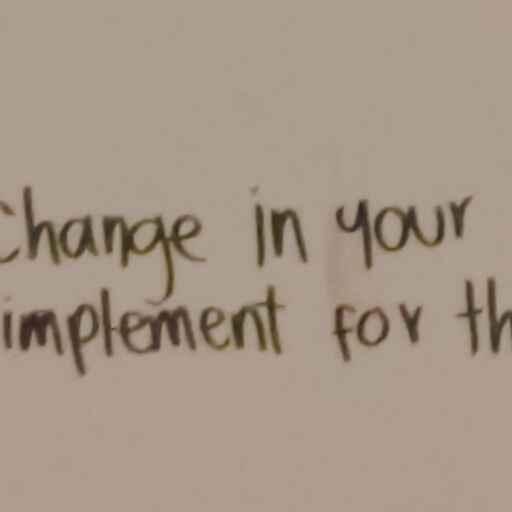 change in your
implement for th